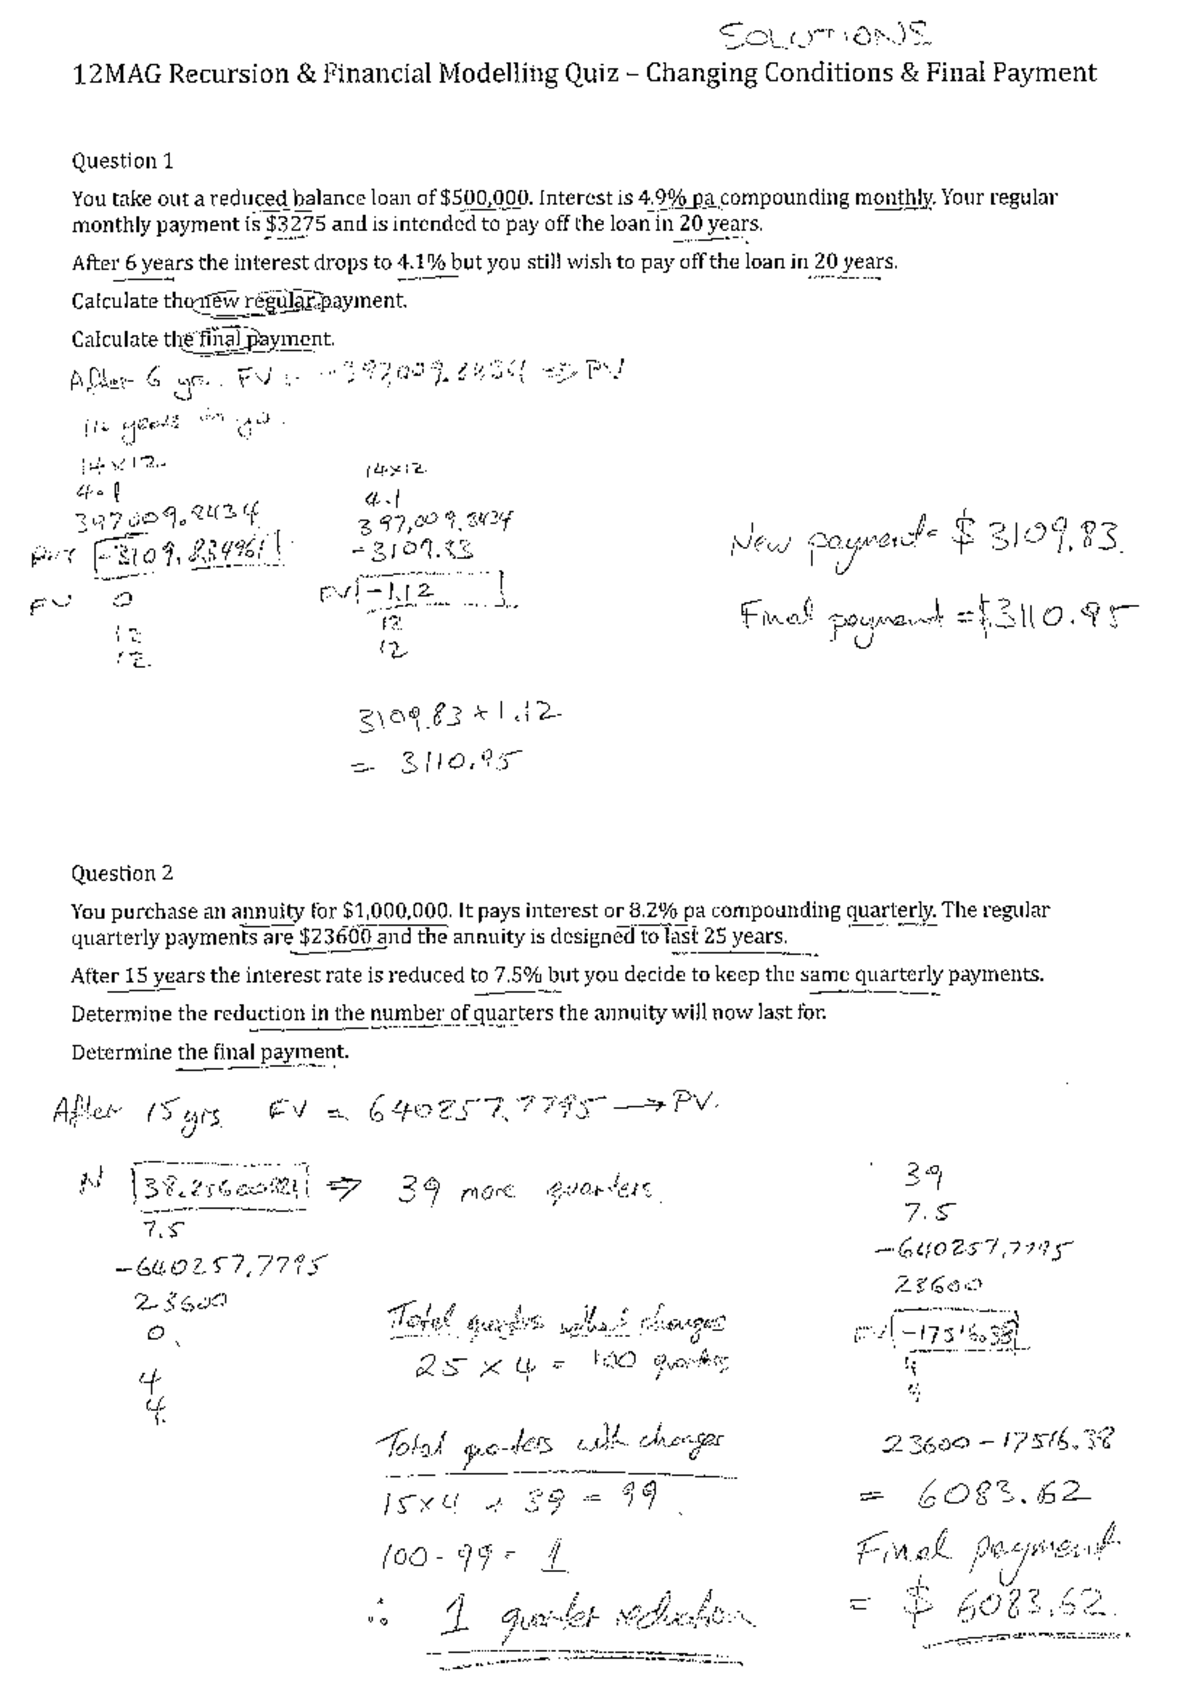 SOLUTIONS
12MAG Recursion & Financial Modelling Quiz – Changing Conditions & Final Payment
Question 1
You take out a reduced balance loan of $500,000. Interest is 4.9% pa compounding monthly. Your regular
monthly payment is $3275 and is intended to pay off the loan in 20 years.
After 6 years the interest drops to 4.1% but you still wish to pay off the loan in 20 years.
Calculate the new regular payment.
Calculate the final payment.
After 6 yrs. FV = -397,009.8434 => PV
14 years to go.
14×12
4.1
397,009.8434
PMT -3109.834961
FV 0
12
12
14×12
4.1
397,009.8434
-3109.83
FV -1.12
12
12
New payment = $3109.83
Final payment = $3110.95
3109.83 + 1.12
= 3110.95
Question 2
You purchase an annuity for $1,000,000. It pays interest or 8.2% pa compounding quarterly. The regular
quarterly payments are $23600 and the annuity is designed to last 25 years.
After 15 years the interest rate is reduced to 7.5% but you decide to keep the same quarterly payments.
Determine the reduction in the number of quarters the annuity will now last for.
Determine the final payment.
After 15 yrs FV = 640257.7795 → PV.
N ⇒ 39 more quarters.
7.5
-640257.7795
23600
0
4
4
Total quarters without changes
25 × 4 = 100 quarters
Total quarters with changes
15×4 + 39 = 99
100 - 99 = 1
∴ 1 quarter reduction
39
7.5
-640257.7795
23600
FV -17516.38
4
4
23600 - 17516.38
= 6083.62
Final payment
= $6083.62